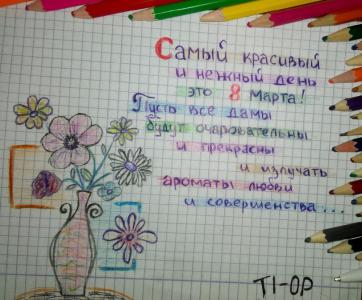 Самый красивый
и нежный день
это 8 Марта!
Пусть все дамы
будут очаровательны
и прекрасны
и излучать
ароматы любви
и совершенства...
TI-OP